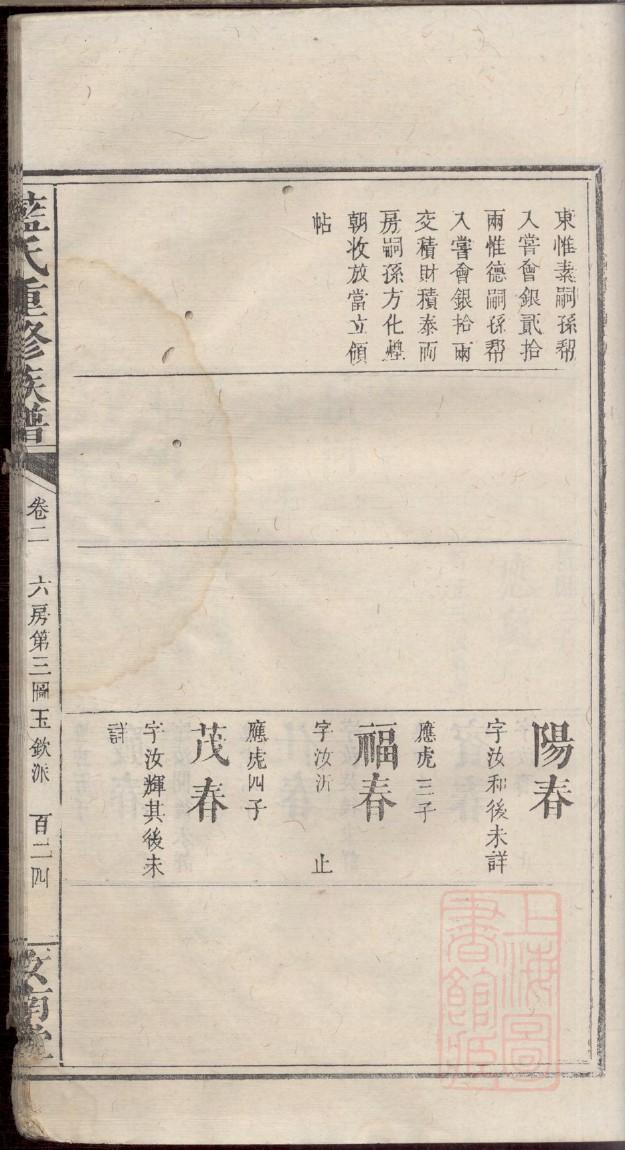 東惟素嗣孫帮
入嘗會銀貳拾
兩惟德嗣孫帮
入嘗會銀拾兩
交積財積泰兩
房嗣孫方化煌
朝收放當立領
帖
陽春
字汝和後未詳
應虎三子
福春
字汝沂 止
應虎四子
茂春
字汝輝其後未
詳
藍氏重修族譜
卷二 六房第三圖玉欽派 百二四
汝南堂
上海圖
書館藏